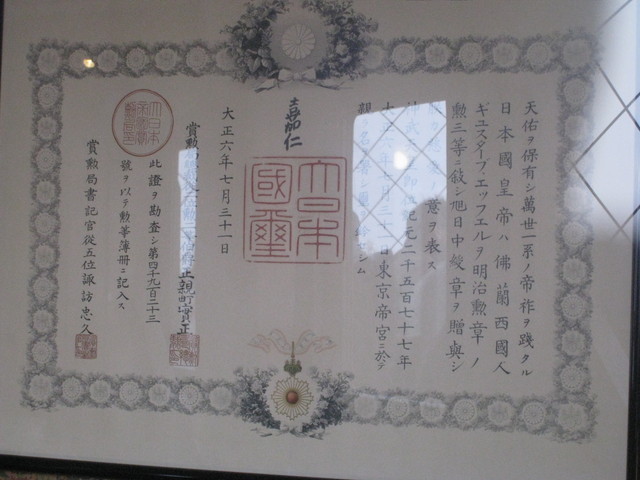 天佑ヲ保有シ萬世一系ノ帝祚ヲ踐タル
日本國皇帝ハ佛蘭西國人
ギュスターフ、エッフエルヲ明治勲章ノ
勲三等ニ敍シ旭日中綬章ヲ贈與シ
意ヲ表ス
紀元二千五百七十七年
大正六年七月三十一日東京帝宮ニ於テ
親ラ名 シム
嘉仁
大日本國璽
大正六年七月三十一日
賞勲局 正親町實正
此證ヲ勘査シ第四千九百二十三
號ヲ以テ勲等簿冊ニ記入ス
賞勲局書記官從五位諏訪忠久